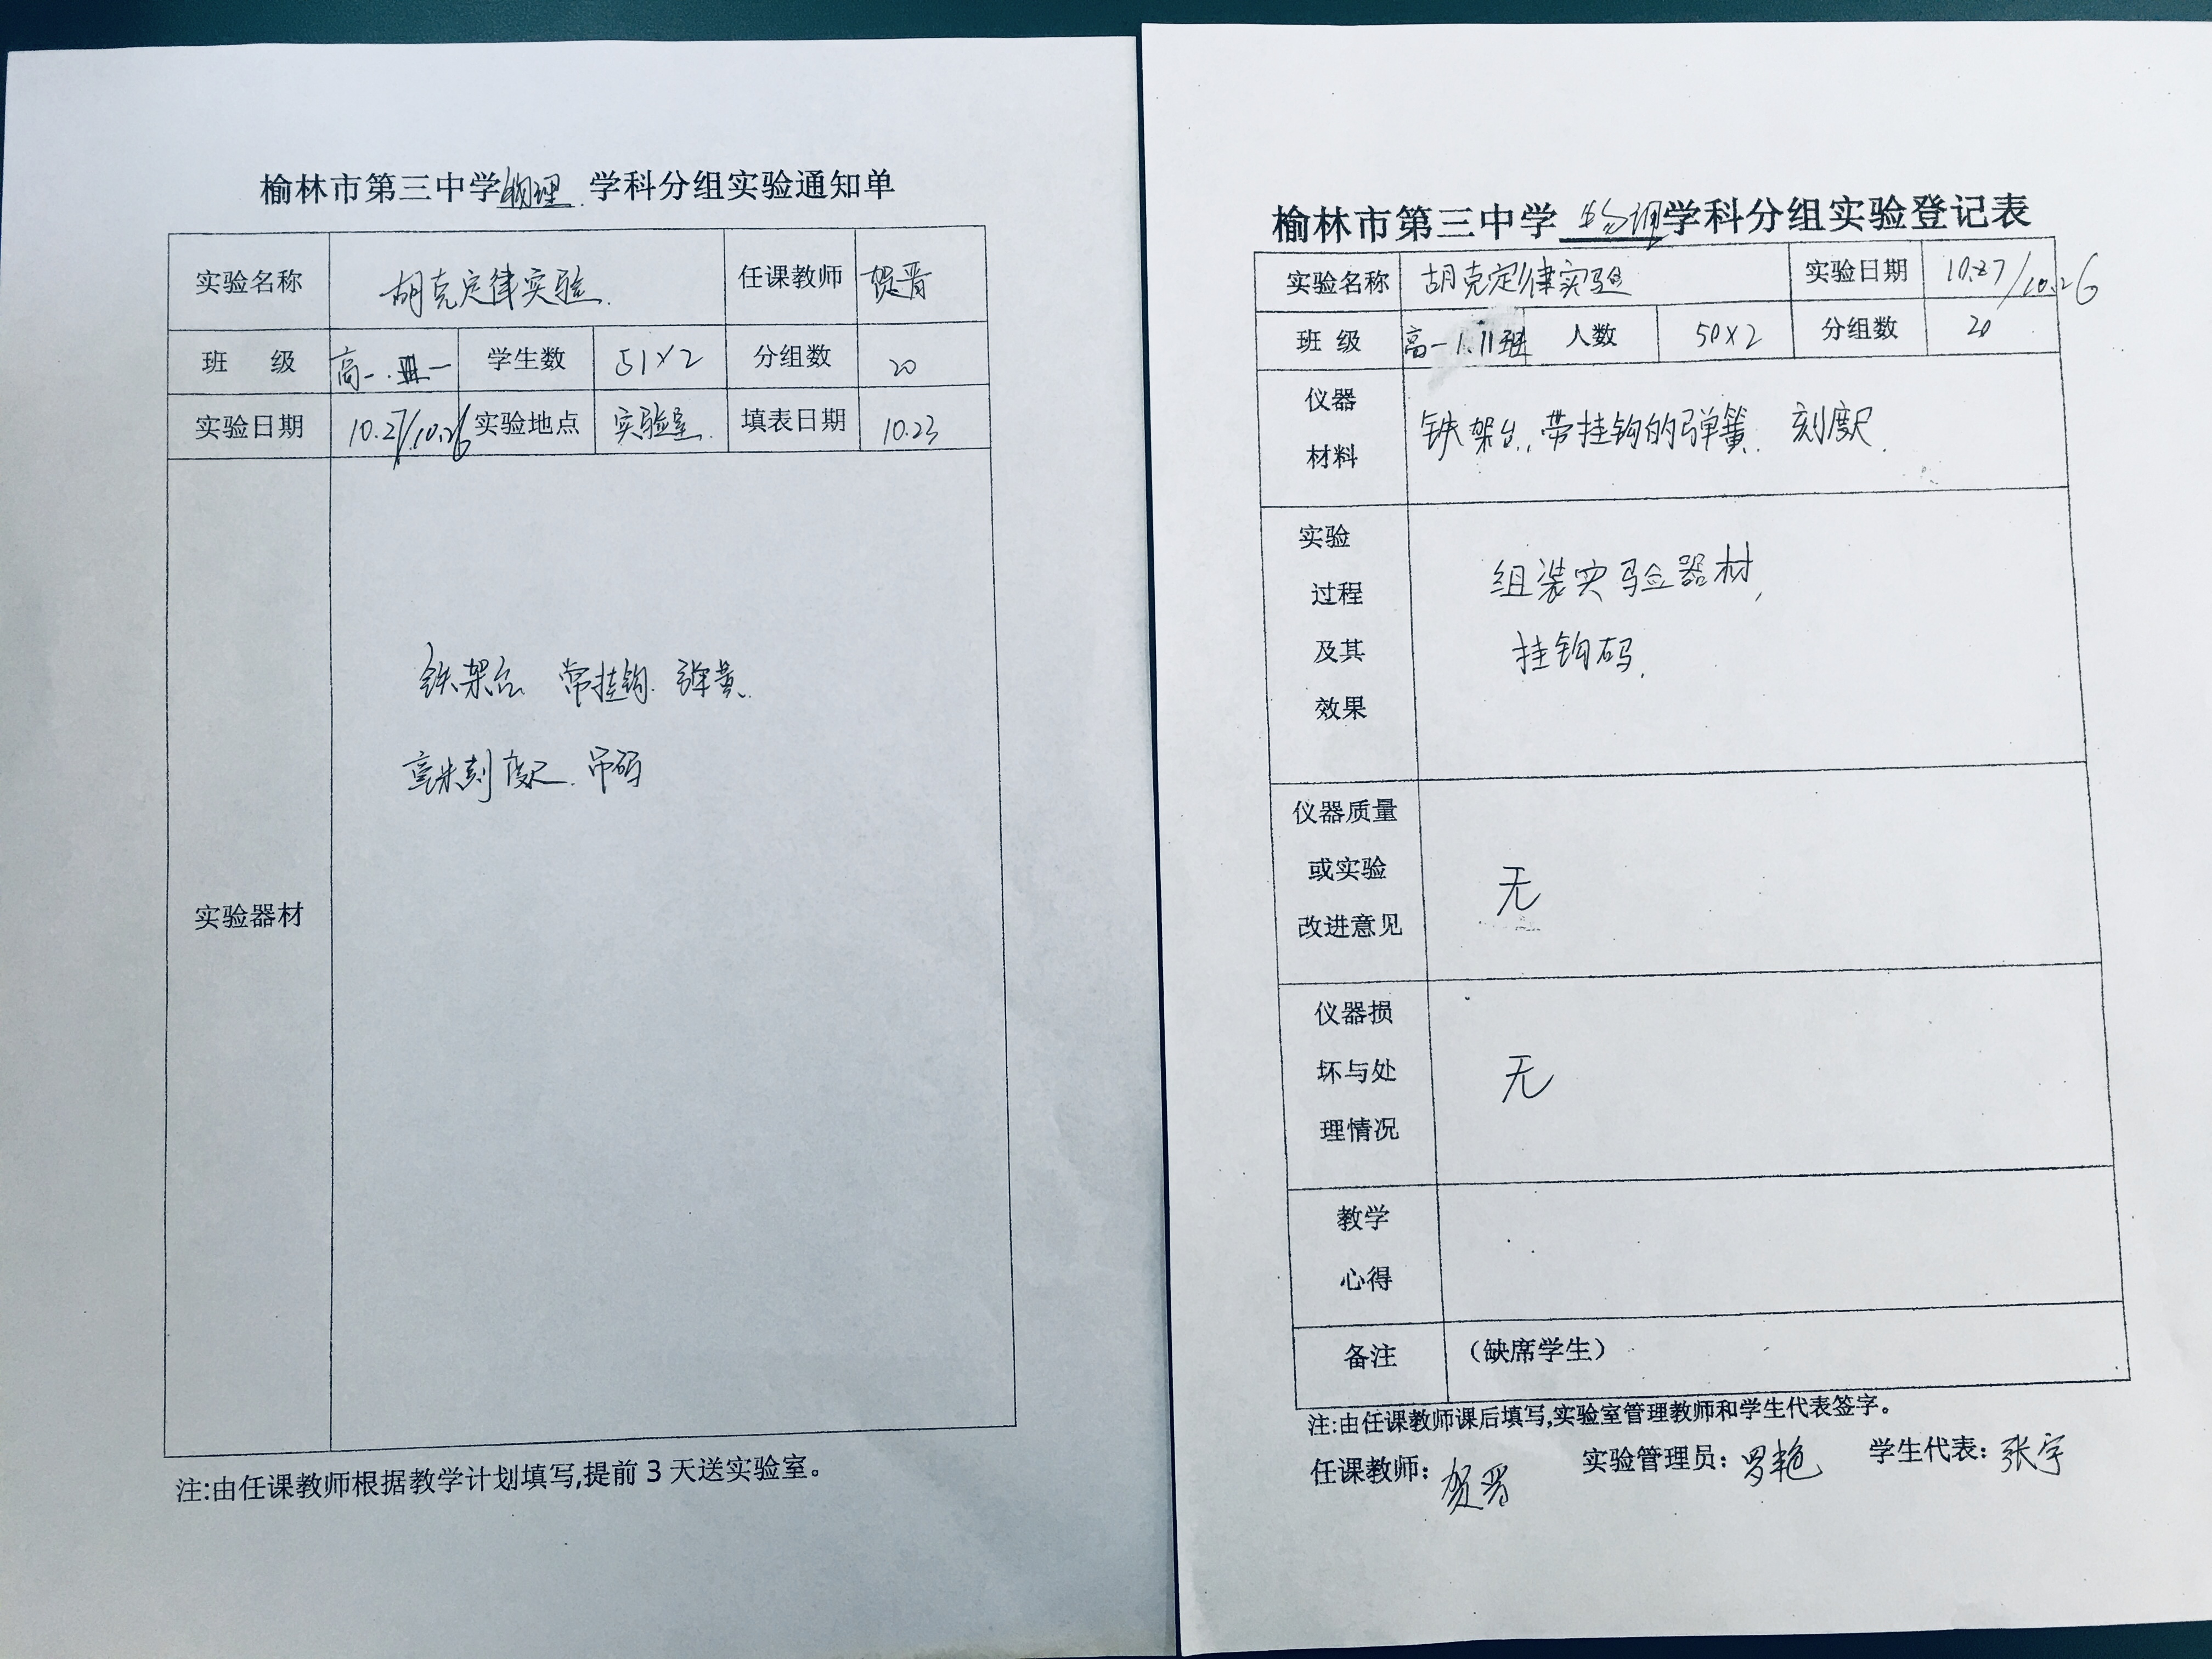 榆林市第三中学物理学科分组实验通知单
实验名称 胡克定律实验. 任课教师 贺晋
班 级 高一. 学生数 51×2 分组数 20
实验日期 10.27/10.26 实验地点 实验室. 填表日期 10.23
实验器材
铁架台 带挂钩. 弹簧.
毫米刻度尺. 吊码
注:由任课教师根据教学计划填写,提前 3 天送实验室。
榆林市第三中学物理学科分组实验登记表
实验名称 胡克定律实验 实验日期 10.27/10.26
班 级 高一1.11班 人数 50×2 分组数 20
仪器
材料
铁架台, 带挂钩的弹簧. 刻度尺.
实验
过程
及其
效果
组装实验器材,
挂钩码.
仪器质量
或实验
改进意见
无
仪器损
坏与处
理情况
无
教学
心得
备注 （缺席学生）
注:由任课教师课后填写,实验室管理教师和学生代表签字。
任课教师: 贺晋 实验管理员: 罗艳 学生代表: 张宇